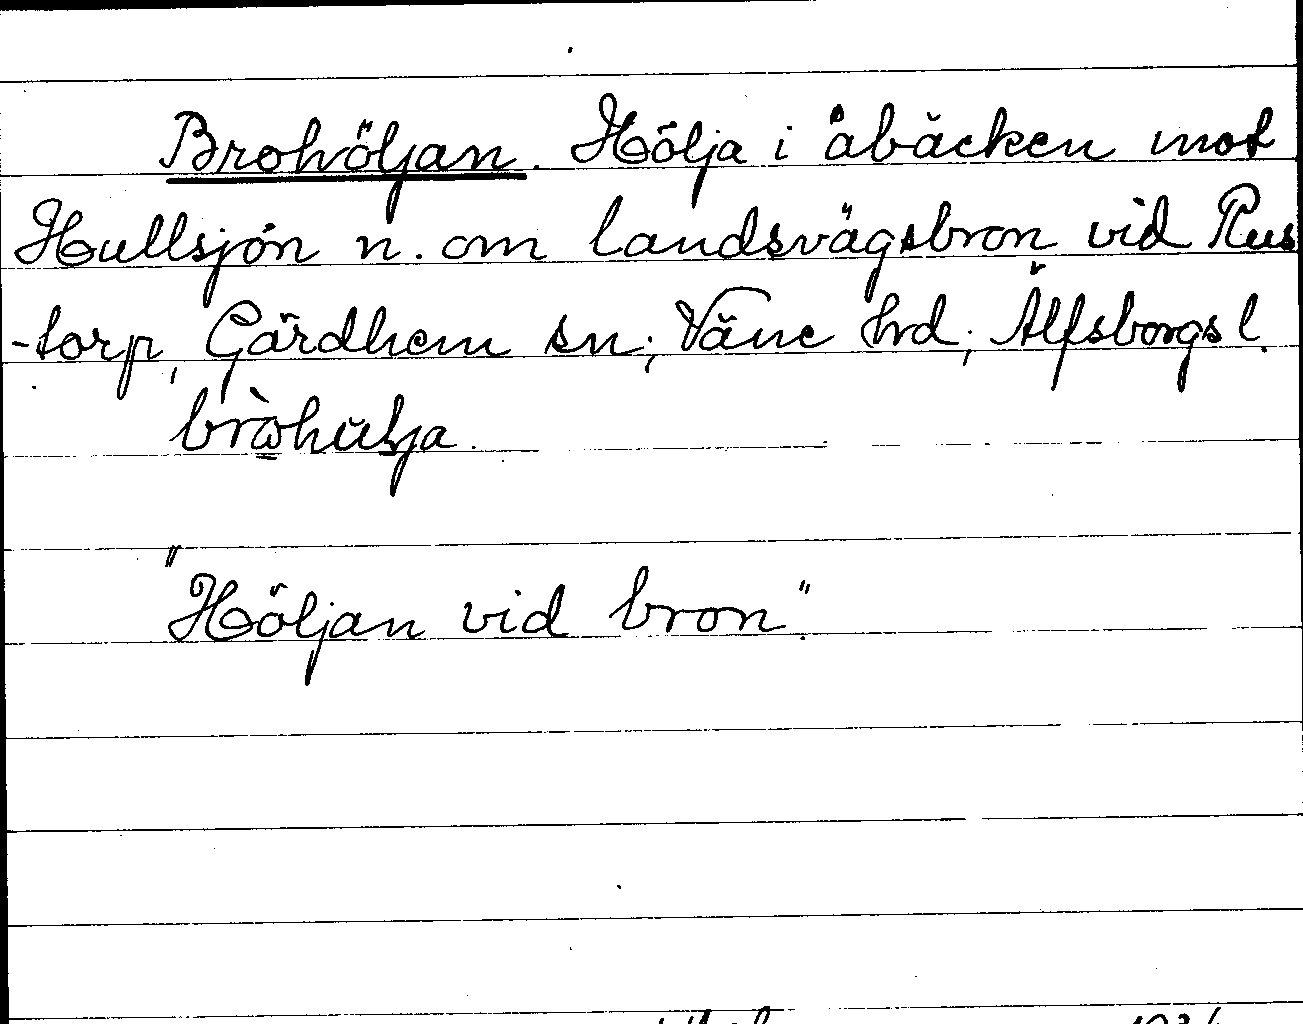 Brohöljan. Hölja i åbäcken mot
Hullsjön n. om landsvägsbron vid Rus
-torp, Gärdhem sn; Väne hd; Älfsborgs l.
"Höljan vid bron".